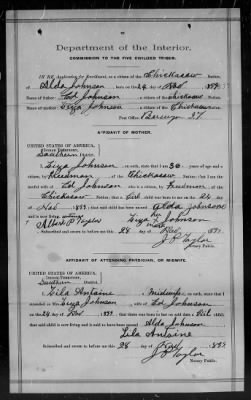 Department of the Interior.
COMMISSION TO THE FIVE CIVILIZED TRIBES.
IN RE Application for Enrollment, as a citizen of the Chickasaw Nation,
of Alda Johnson, born on the 24 day of Nov, 1899
Name of Father: Ed Johnson, a citizen of the Chickasaw Nation.
Name of Mother: Liza Johnson, a citizen of the Chickasaw Nation.
Post Office, Berwyn IT
AFFIDAVIT OF MOTHER.
UNITED STATES OF AMERICA,
INDIAN TERRITORY,
Southern District.
I, Liza Johnson, on oath state that I am 36 years of age and a
citizen, by of the Chickasaw Nation; that I am the
lawful wife of Ed Johnson, who is a citizen, by Freedman, of the
Chickasaw Nation; that a Girl child was born to me on the 24
day of Nov, 1899; that said child has been named Alda Johnson,
and is now living.
Albert P Taylor
Liza X Johnson
her
mark
Subscribed and sworn to before me this 28 day of Nov, 1899
J P Taylor
Notary Public.
AFFIDAVIT OF ATTENDING PHYSICIAN, OR MIDWIFE.
UNITED STATES OF AMERICA,
INDIAN TERRITORY,
Southern District.
I, Lila Antoine, a Midwife, on oath state that I
attended on Liza Johnson, wife of Ed Johnson
on the 24 day of Nov, 1899; that there was born to her on said date a Girl child;
that said child is now living and is said to have been named Alda Johnson
Lila Antoine
Subscribed and sworn to before me this 28 day of Nov, 1899
J P Taylor
Notary Public.